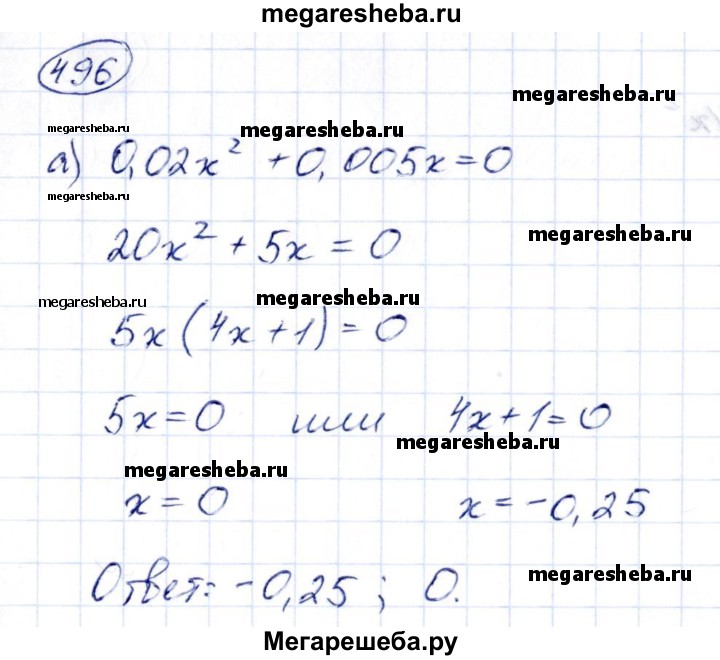 megaresheba.ru
496
megaresheba.ru
megaresheba.ru megaresheba.ru
а) 0,02x² + 0,005x = 0
megaresheba.ru
20x² + 5x = 0 megaresheba.ru
megaresheba.ru megaresheba.ru
5x (4x + 1) = 0
5x = 0 или 4x + 1 = 0
megaresheba.ru
megaresheba.ru
x = 0 x = -0,25
Ответ: -0,25 ; 0.
megaresheba.ru
Мегарешеба.ру